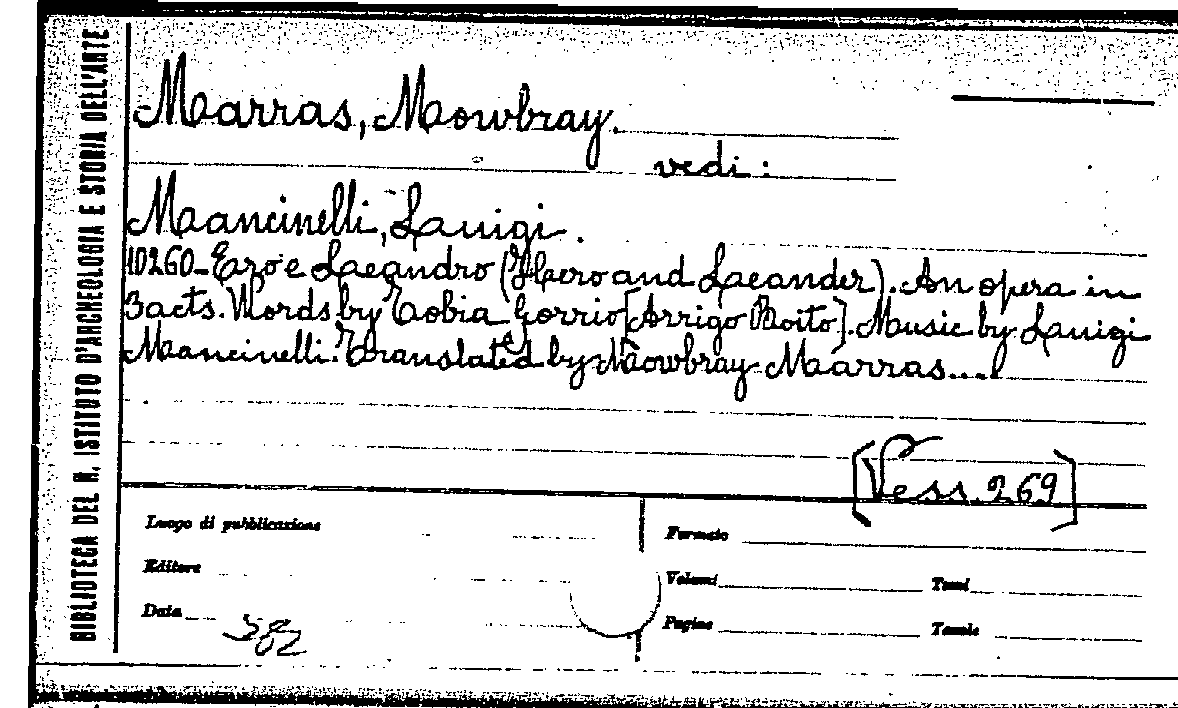 BIBLIOTECA DEL R. ISTITUTO D'ARCHEOLOGIA E STORIA DELL'ARTE
Marras, Mowbray.
vedi:
Mancinelli, Luigi.
10260-Ero e Leandro (Hero and Leander). An opera in
3 acts. Words by Tobia Gorrio [Arrigo Boito]. Music by Luigi
Mancinelli. Translated by Mowbray Marras....
[Vess. 269]
Luogo di pubblicazione
Formato
Editore
Volumi Tomi
Data 382
Pagine Tavole